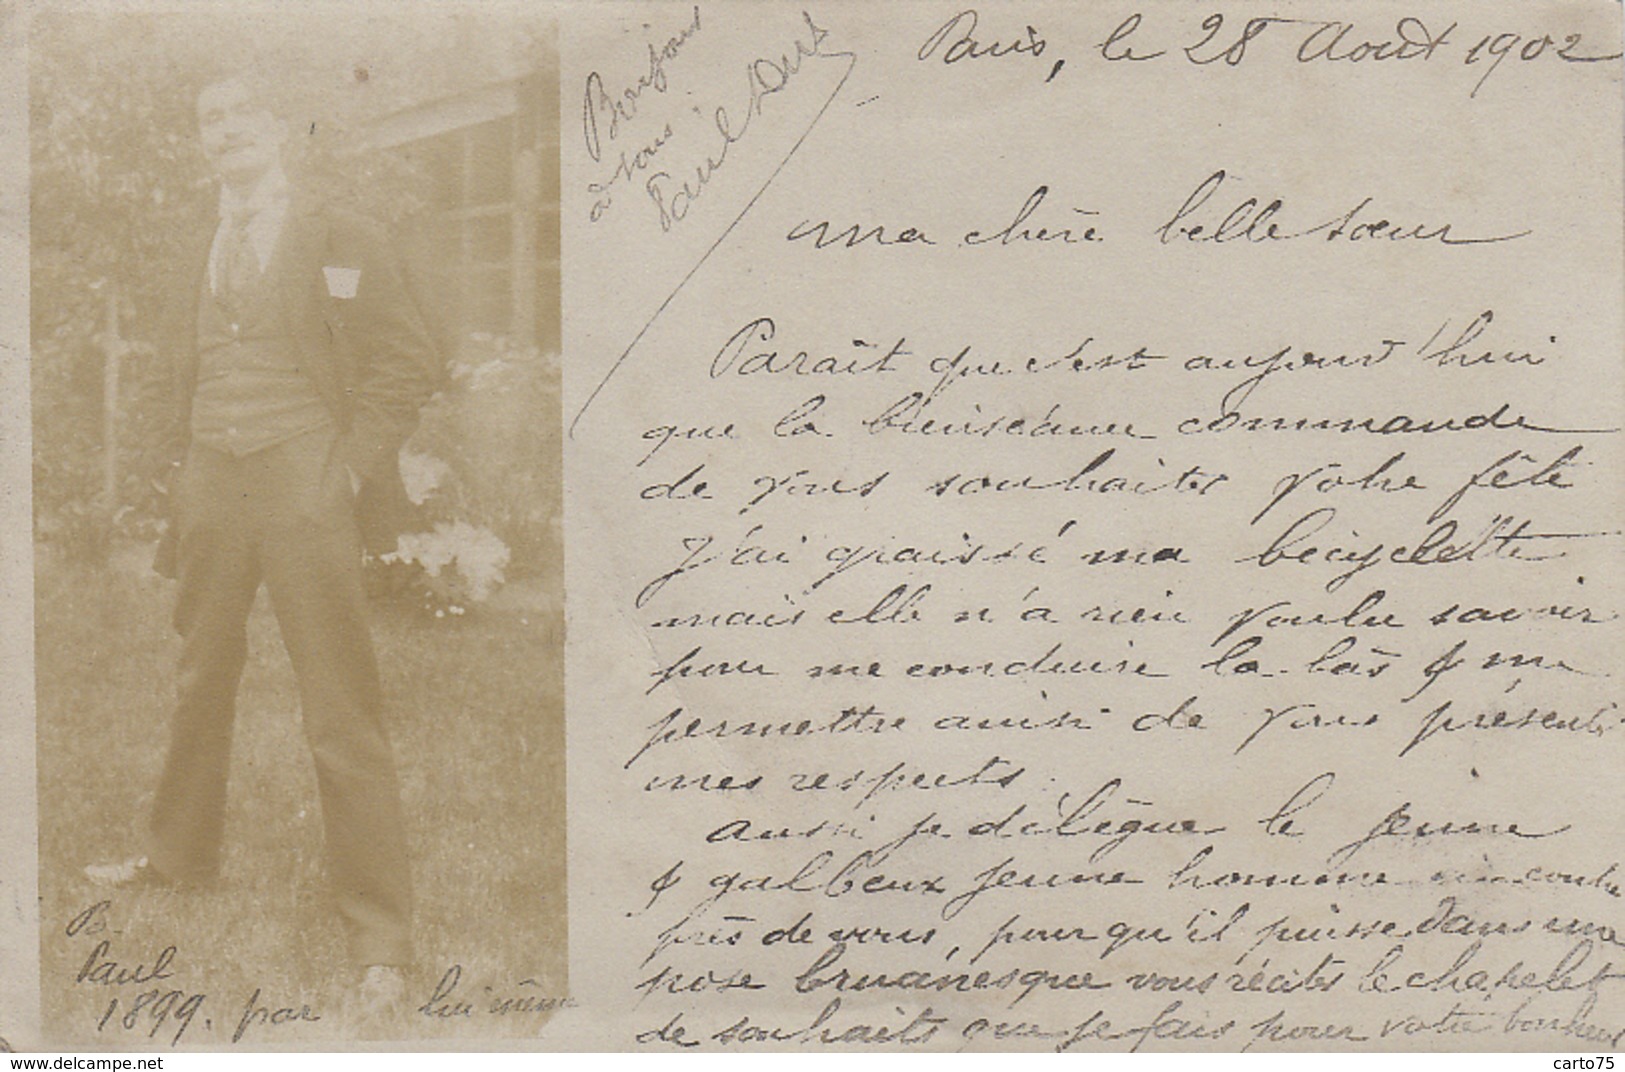 Paris, le 28 Août 1902
Bonjour
à tous
Paul
ma chère belle sœur
Paraît que c'est aujourd'hui
que la bienséance commande
de vous souhaiter votre fête
J'ai graissé ma becyclette
mais elle n'a rien voulu savoir
pour me conduire la-bàs & me
permettre ainsi de vous présenter
mes respects.
Aussi je délègue le jeune
& galbeux jeune homme ci-contre
près de vous, pour qu'il puisse dans une
pose bruanesque vous réciter le chapelet
de souhaits que je fais pour votre bonheur
B.
Paul
1899. par lui même
delcampe.net
carto75